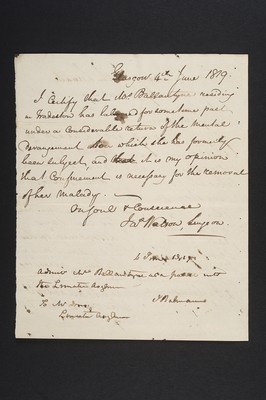 Glasgow 4th June 1819.
I Certify that Mrs Ballantyne residing
in Tradeston has laboured for sometime past
under a considerable return of the mental
derangement to which she has formerly
been subject, and that it is my opinion
that Confinement is necessary for the removal
of her malady. —
On Soul & Conscience
Jas Watson Surgeon.
4 June 1819
Admit Mrs Ballantyne as a patient into
the Lunatic Asylum
To Mr
Lunatic Asylum